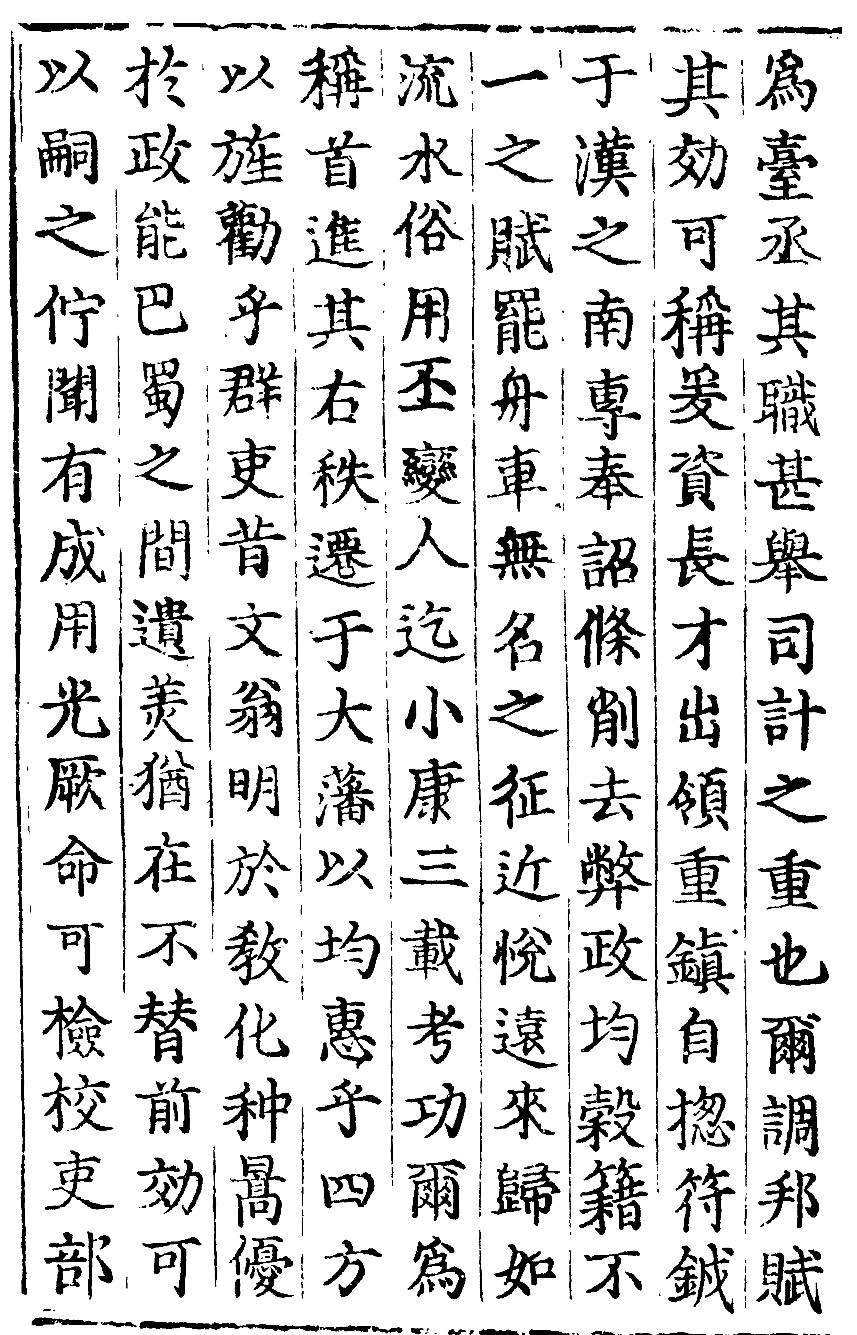 爲臺丞其職甚舉司計之重也爾調邦賦
其効可稱爰資長才出領重鎮自揔符鉞
于漢之南專奉詔條削去弊政均穀籍不
一之賦罷舟車無名之征近悅遠來歸如
流水俗用丕變人迄小康三載考功爾爲
稱首進其右秩遷于大藩以均惠乎四方
以旌勸乎群吏昔文翁明於敎化种暠優
於政能巴蜀之間遺羙猶在不替前効可
以嗣之佇聞有成用光厥命可檢校吏部